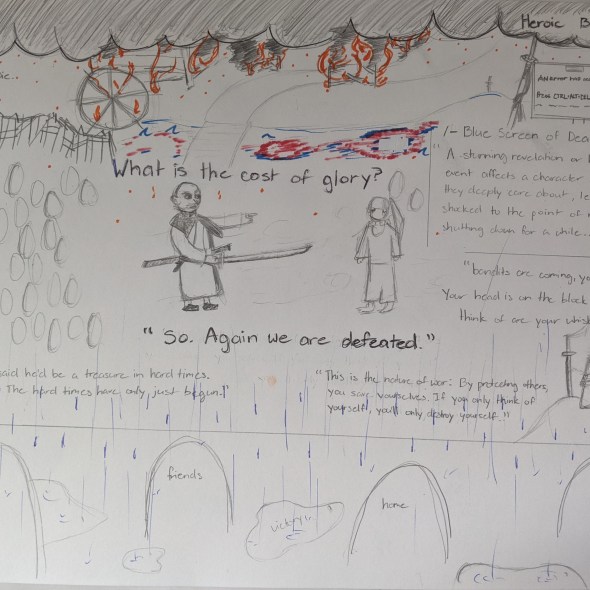 Heroic B
AN error has oc
Press CTRL-ALT-DEL
1- Blue Screen of Dea
"A stunning revelation or
event affects a character
they deeply care about, le
shocked to the point of
shutting down for a while...
What is the cost of glory?
"bandits are coming, yo
Your head is on the block
think of are your whisk
"So. Again we are defeated."
said he'd be a treasure in hard times.
The hard times have only just begun!"
"This is the nature of war: By protecting others,
you save yourselves. If you only think of
yourself, you'll only destroy yourself."
friends
victory
home